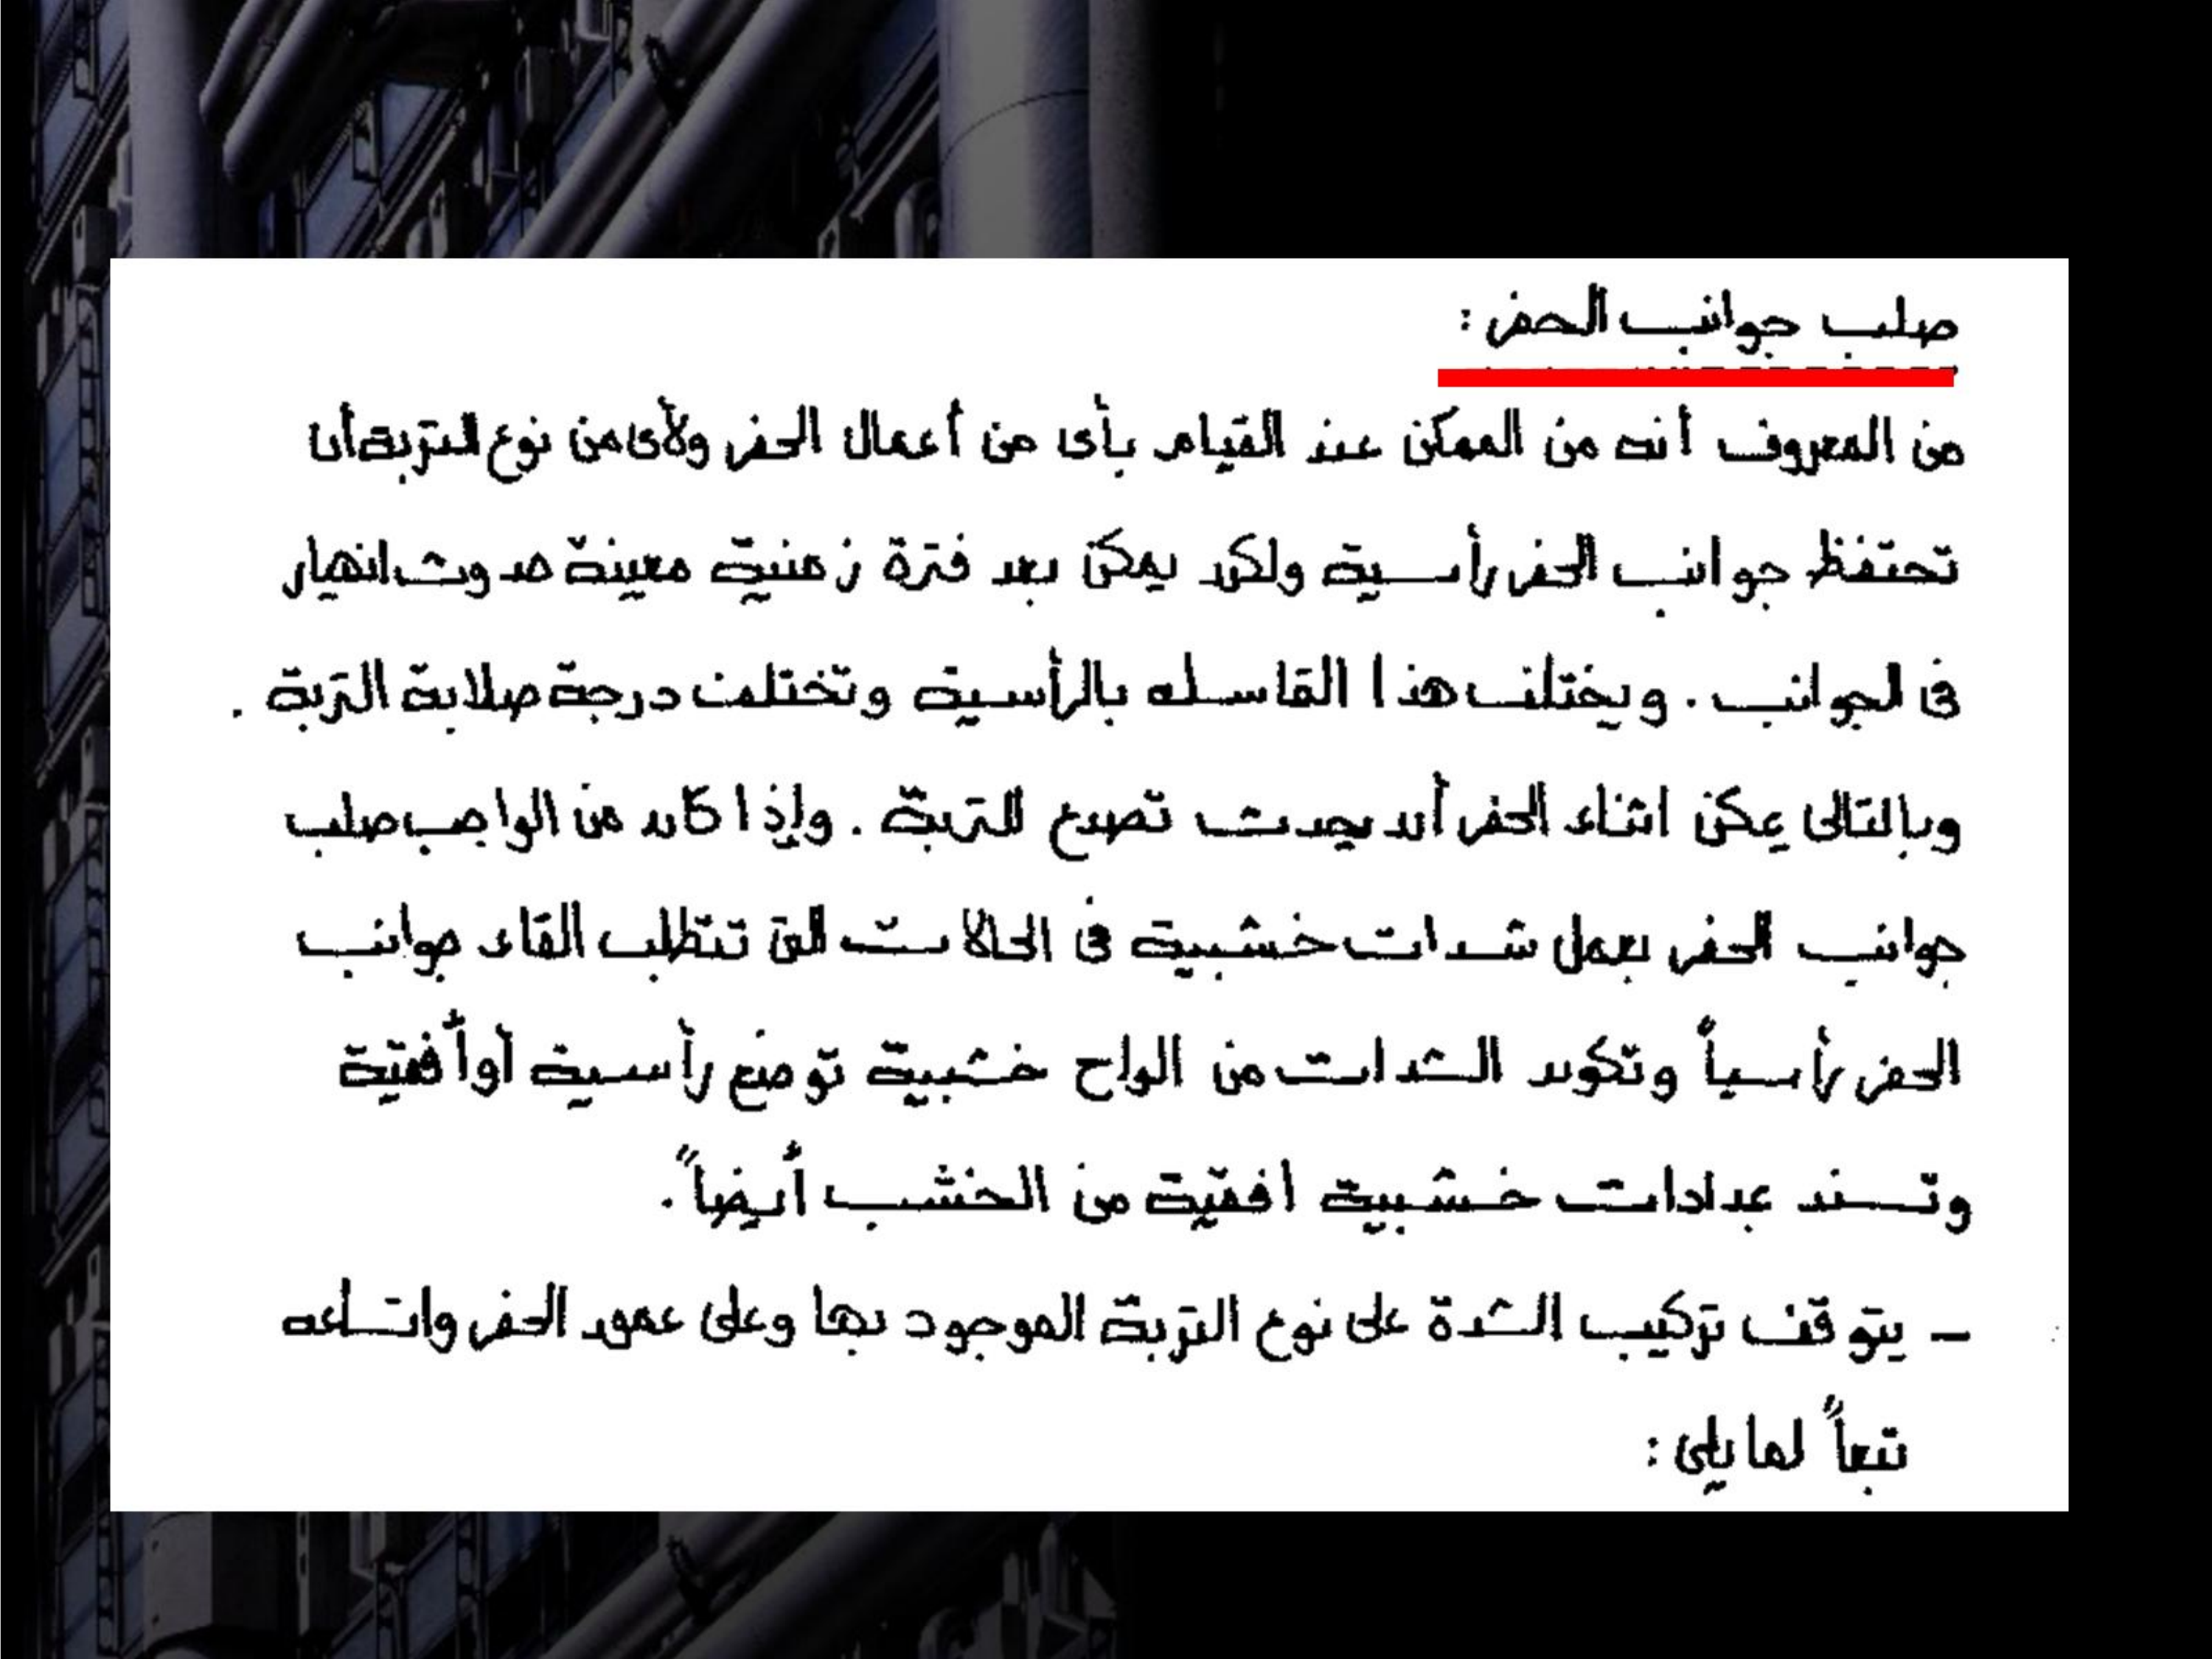 صلب جوانب الحفر :
من المعروف أنه من الممكن عند القيام بأى من أعمال الحفر ولأى من نوع التربة أن
تحتفظ جوانب الحفر رأسية ولكن يمكن بعد فترة زمنية معينة حدوث انهيار
فى الجوانب . ويختلف هذا التماسك بالرأسية وتختلف درجة صلابة التربة .
وبالتالى يمكن اثناء الحفر أن يحدث تصدع للتربة . وإذا كان من الواجب صلب
جوانب الحفر بعمل شدات خشبية فى الحالات التى تتطلب القاء جوانب
الحفر رأسياً وتكون الشدات من الواح خشبية توضع رأسية أو أفقية
وتسند عدادات خشبية افقية من الخشب أيضاً .
- يتوقف تركيب الشدة على نوع التربة الموجود بها وعلى عمق الحفر واتساعه
تبعاً لما يلى :